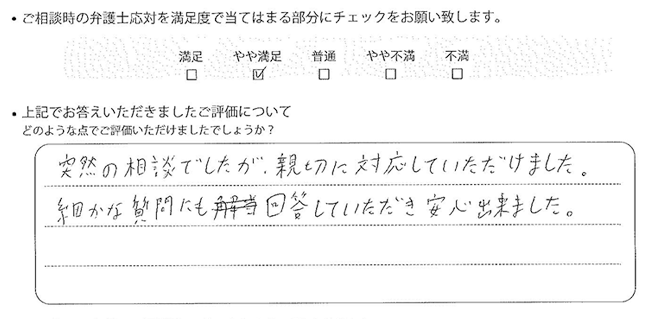 • ご相談時の弁護士応対を満足度で当てはまる部分にチェックをお願い致します。
満足 やや満足 普通 やや不満 不満
□ ☑ □ □ □
• 上記でお答えいただきましたご評価について
どのような点でご評価いただけましたでしょうか？
突然の相談でしたが、親切に対応していただけました。
細かな質問にも回答していただき安心出来ました。